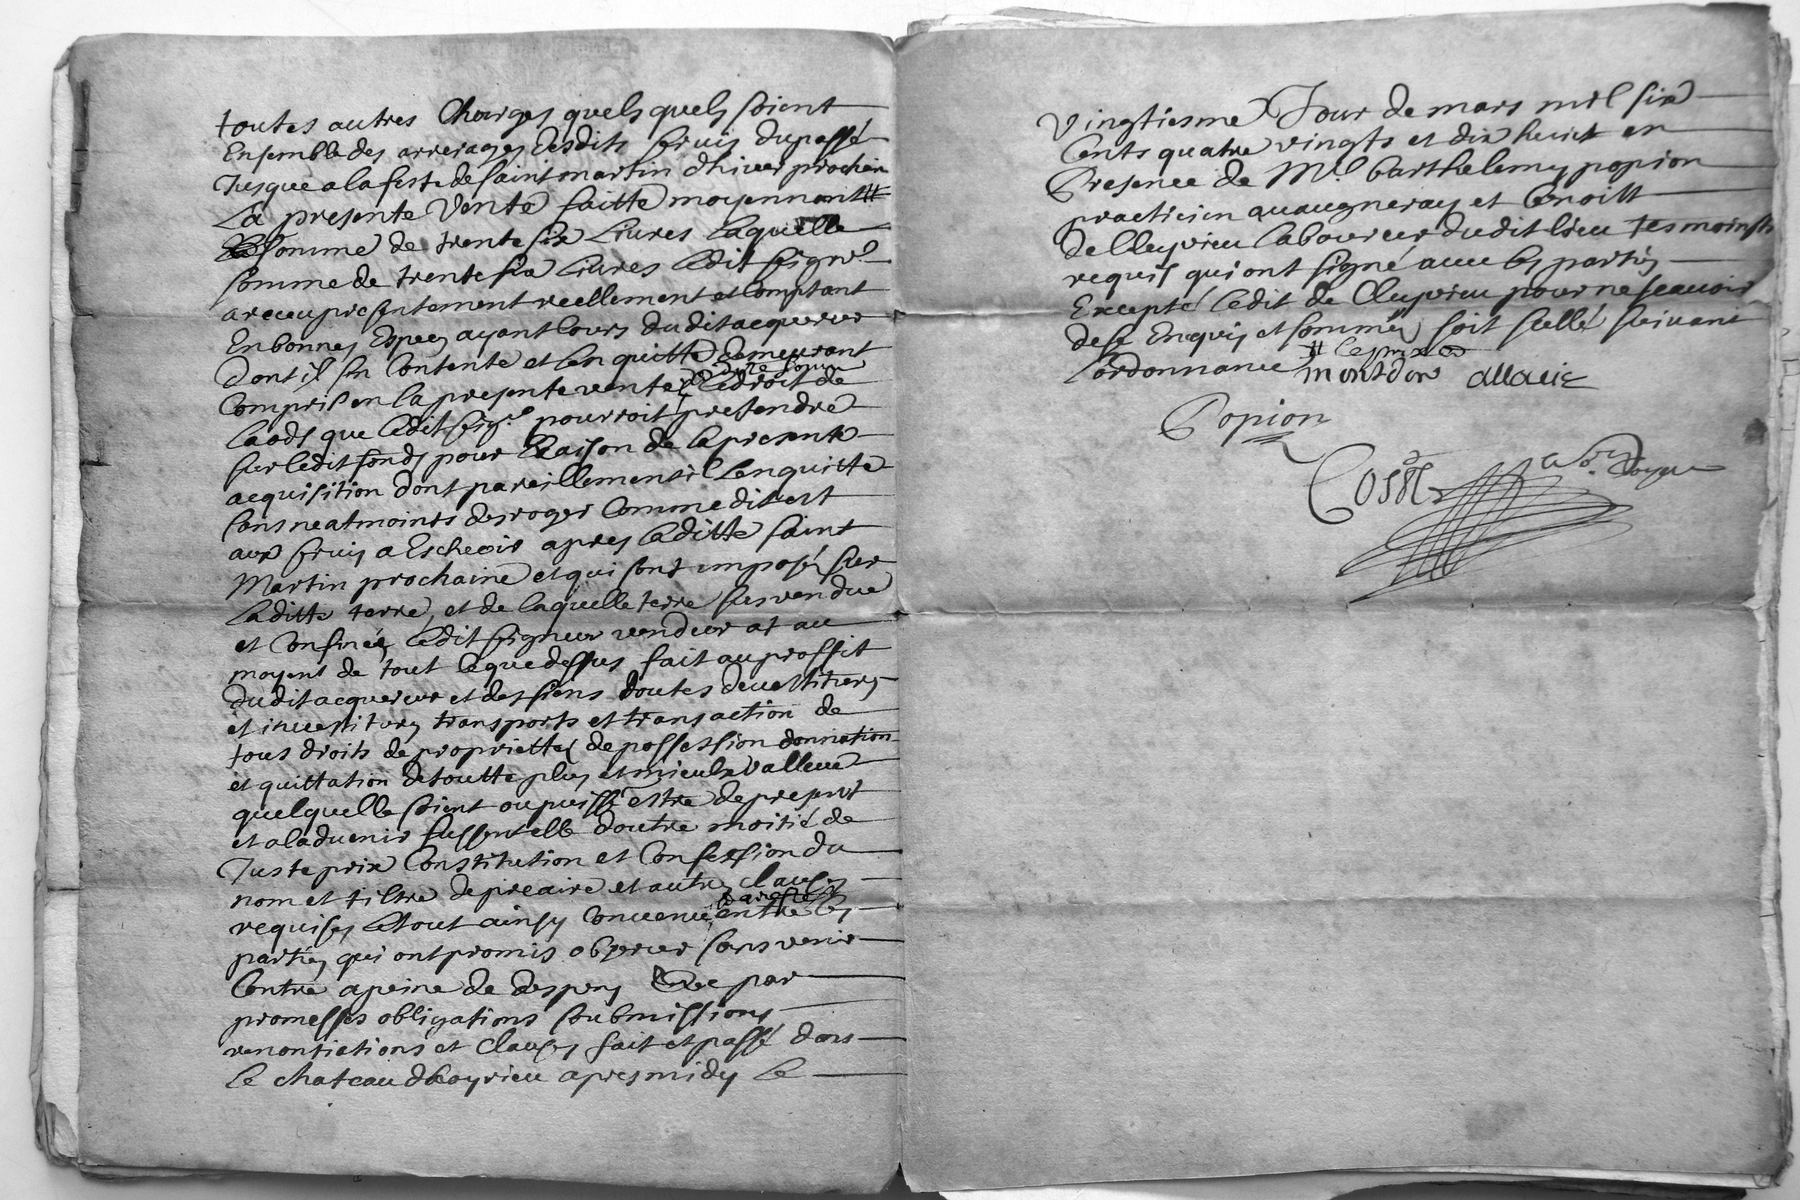 toutes autres Charges quels quels soient
Ensemble des arrerages desdits servis du passé
Jusque a la feste de saint martin dhiver prochain
La presente Vente faitte moyennant #
somme de trente six Livres Laquelle
somme de trente six Livres Ledit seignr
a receu presentement reellement et Comptant
En bonnes Especes ayant Cours dudit acquereur
dont il sen Contente et Len quitte demeurant
Compris en la presente vente Le droit de
Laods que Ledit seigr pourroit pretendre
sur Ledit fonds pour Raison de la presente
acquisition dont pareillement il Len quitte
sans neatmoints desroger Comme dit est
aux servis a Escheoir apres Laditte saint
Martin prochaine et qui sont imposés sur
Laditte terre, et de laquelle terre susvendue
et Confinée Ledit seigneur vendeur at au
moyent de tout Ce que dessus fait au proffit
dudit acquereur et des siens toutes devestitures
et investitures transports et transaction de
tous droits de proprietté de possession donnation
et quittation de toutte plus et mieulx valleue
quelquelle soient ou puisse estre de present
et a ladvenir fussent elle doutre moitié de
Juste prix Constitution et Confession du
nom et tiltre de precaire et autres clauses
requises Le tout ainsy Convenu entre les
parties qui ont promis observer sans venir
Contre a peine de despens par
promesses obligations soubmissions
renontiations et Clauses fait et passé dans
Le chateau dhoyrieu apres midy Le
Vingtiesme Jour de mars mil six
Cents quatre vingts et dix huict en
Presence de Mre barthelemy popion
practicien a vaugneray et benoist
de Cluyrieu Laboureur dudit Lieu tesmoints
requis qui ont signé avec les parties
Excepté Ledit de Cluyrieu pour ne scavoir
de ce Enquis et sommés soit scellé suivant
Lordonnance # Le prix et
montdor allaix
Popion
Coste